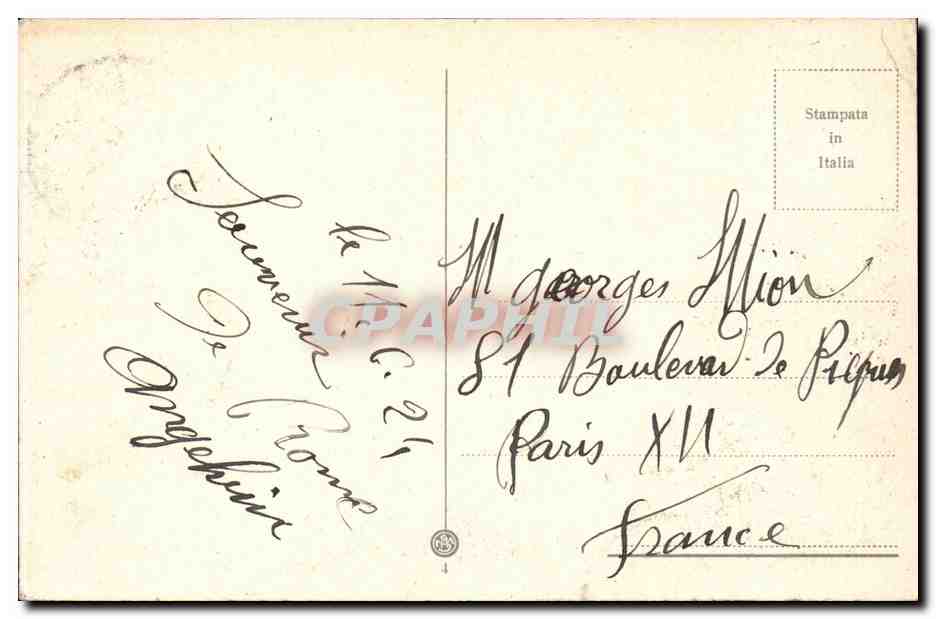 Stampata
in
Italia
le 11. 6. 21
Souvenir
De Rome
M georges Mion
81 Boulevard de Picpus
Paris XII
France
CPAPHIL
4